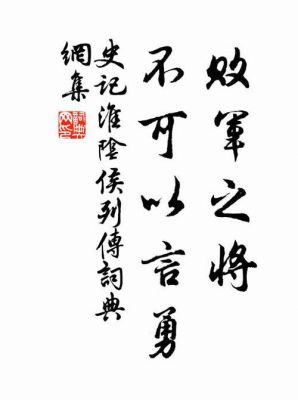 敗軍之將
不可以言勇
史記淮陰侯列傳詞典
網集